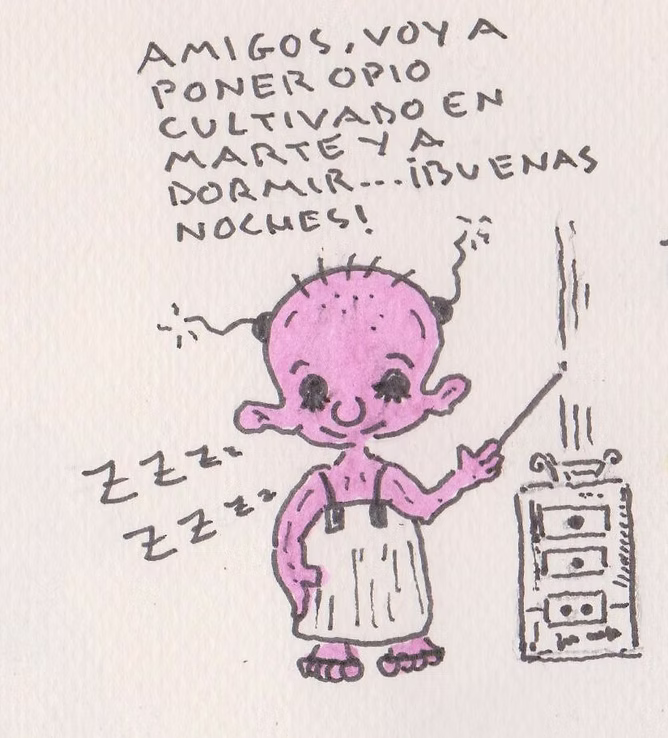 AMIGOS, VOY A
PONER OPIO
CULTIVADO EN
MARTE Y A
DORMIR... ¡BUENAS
NOCHES!
ZZZZ
ZZZZZ